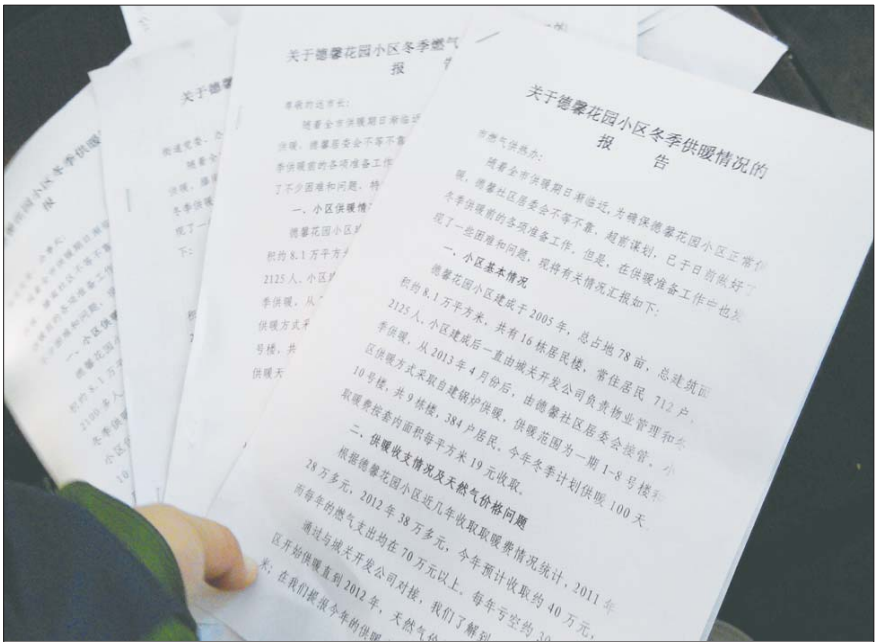 关于德馨花园小区冬季供暖情况的
报 告
市燃气供热办：
随着全市供暖期日渐临近，为确保德馨花园小区正常供
暖，德馨社区居委会不等不靠、超前谋划，已于日前做好了
冬季供暖前的各项准备工作。但是，在供暖准备工作中也发
现了一些困难和问题，现将有关情况汇报如下：
一、小区基本情况
德馨花园小区建成于 2005 年，总占地 78 亩，总建筑面
积约 8.1 万平方米，共有 16 栋居民楼，常住居民 712 户，
2125 人，小区建成后一直由城关开发公司负责物业管理和冬
季供暖，从 2013 年 4 月份后，由德馨社区居委会接管，小
区供暖方式采取自建锅炉供暖，供暖范围为一期 1-8 号楼和
10 号楼，共 9 栋楼，384 户居民。今年冬季计划供暖 100 天，
取暖费按套内面积每平方米 19 元收取。
二、供暖收支情况及天然气价格问题
根据德馨花园小区近几年收取取暖费情况统计，2011 年
28 万多元，2012 年 38 万多元，今年预计收取约 40 万元，
而每年的燃气支出均在 70 万元以上，每年亏空约 30
通过与城关开发公司对接，我们了解到
区开始供暖直到 2012 年，天然气价
米；在我们提报今年的供暖
关于德馨花园小区冬季燃气
报 告
尊敬的远市长：
随着全市供暖期日渐临近
供暖，德馨居委会不等不靠
季供暖前的各项准备工作
了不少困难和问题，特
一、小区供暖情
德馨花园小区建
积约 8.1 万平方米
2125 人，小区
季供暖，从
供暖方式采
号楼，共
供暖天
关于德馨
街道党委、办
随着全
供暖，德馨
冬季供暖
现了一些
下：
关于德馨花园小区冬季供暖
报
一、小区供暖
德馨花园
积约 8.1 万
2100 多人
冬季供
小区供
10